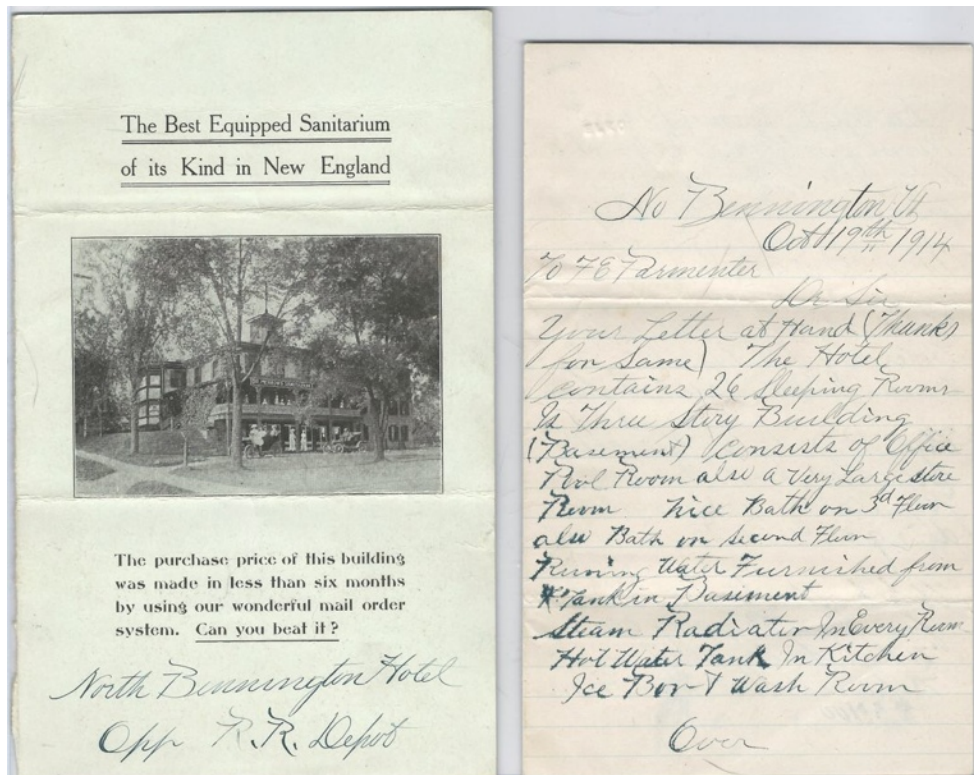 The Best Equipped Sanitarium
of its Kind in New England
The purchase price of this building
was made in less than six months
by using our wonderful mail order
system. Can you beat it?
North Bennington Hotel
Opp R.R. Depot
No Bennington Vt
Oct 19th 1914
To F E Parmenter
Dr Sir
Your Letter at Hand (Thanks
for Same) The Hotel
contains 26 Sleeping Rooms
Is Three Story Building
(Basement) consists of Office
Pool Room also a Very Large store
Room Nice Bath on 3d Floor
also Bath on second Floor
Runing Water Furnished from
Tank in Basement
Steam Radiator In Every Room
Hot Water Tank In Kitchen
Ice Box & Wash Room
Over